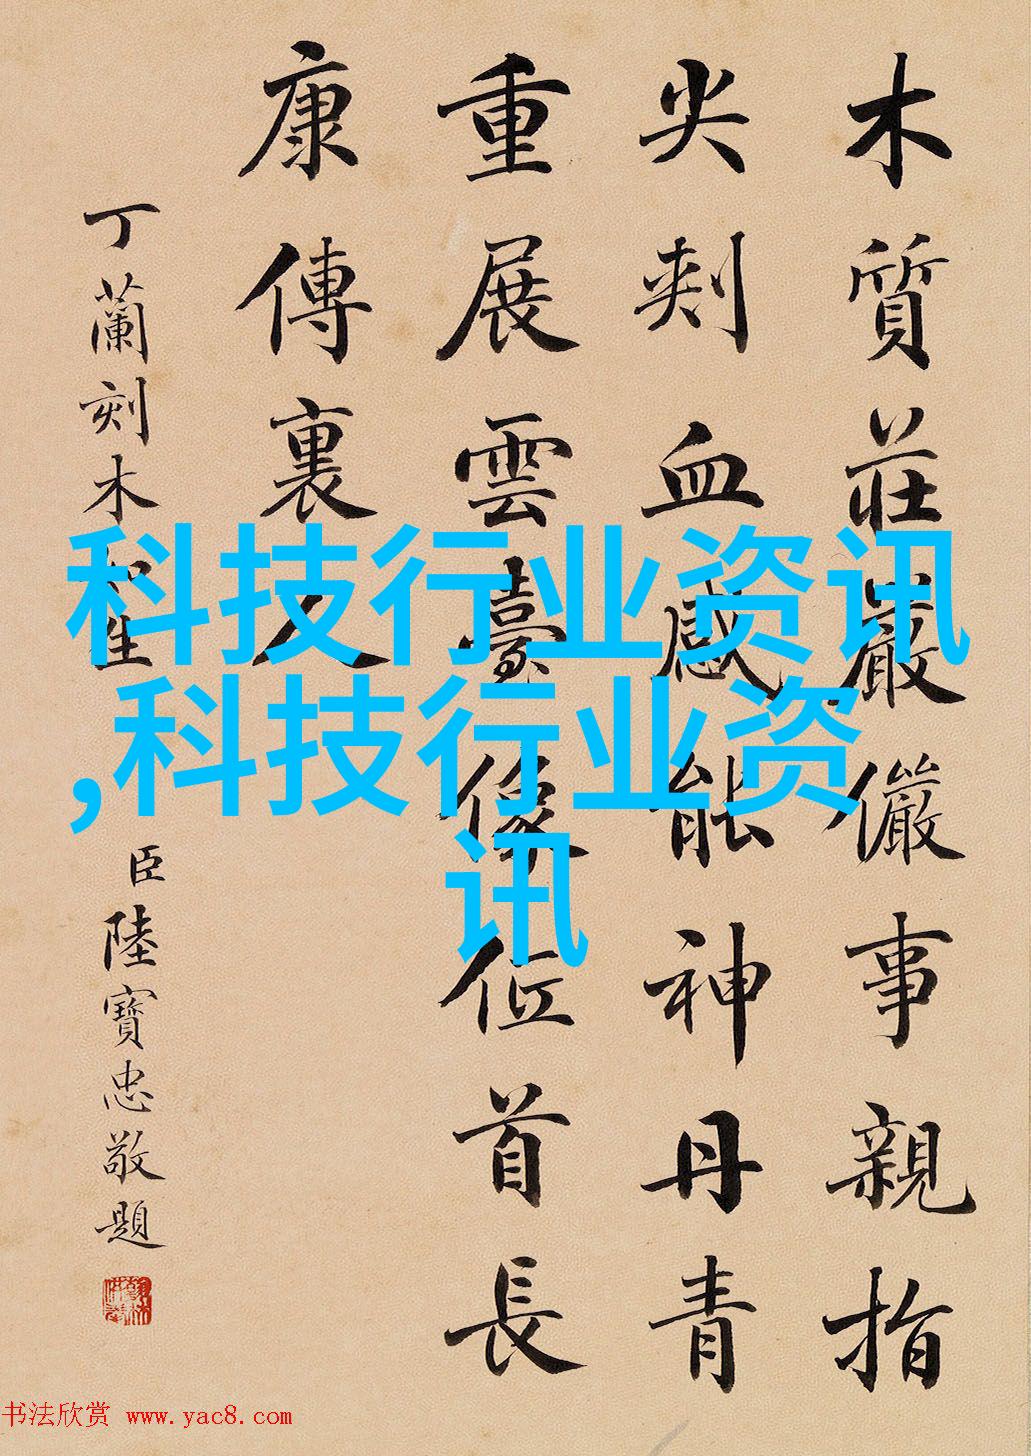 木質莊嚴儼事親指
尖刾血感能神丹青
重展雲臺像位首長
康傳裏人
丁蘭刻木
臣陸寶忠敬題
科技行业资讯
,科技行业资
讯
书法欣赏 www.yac8.com